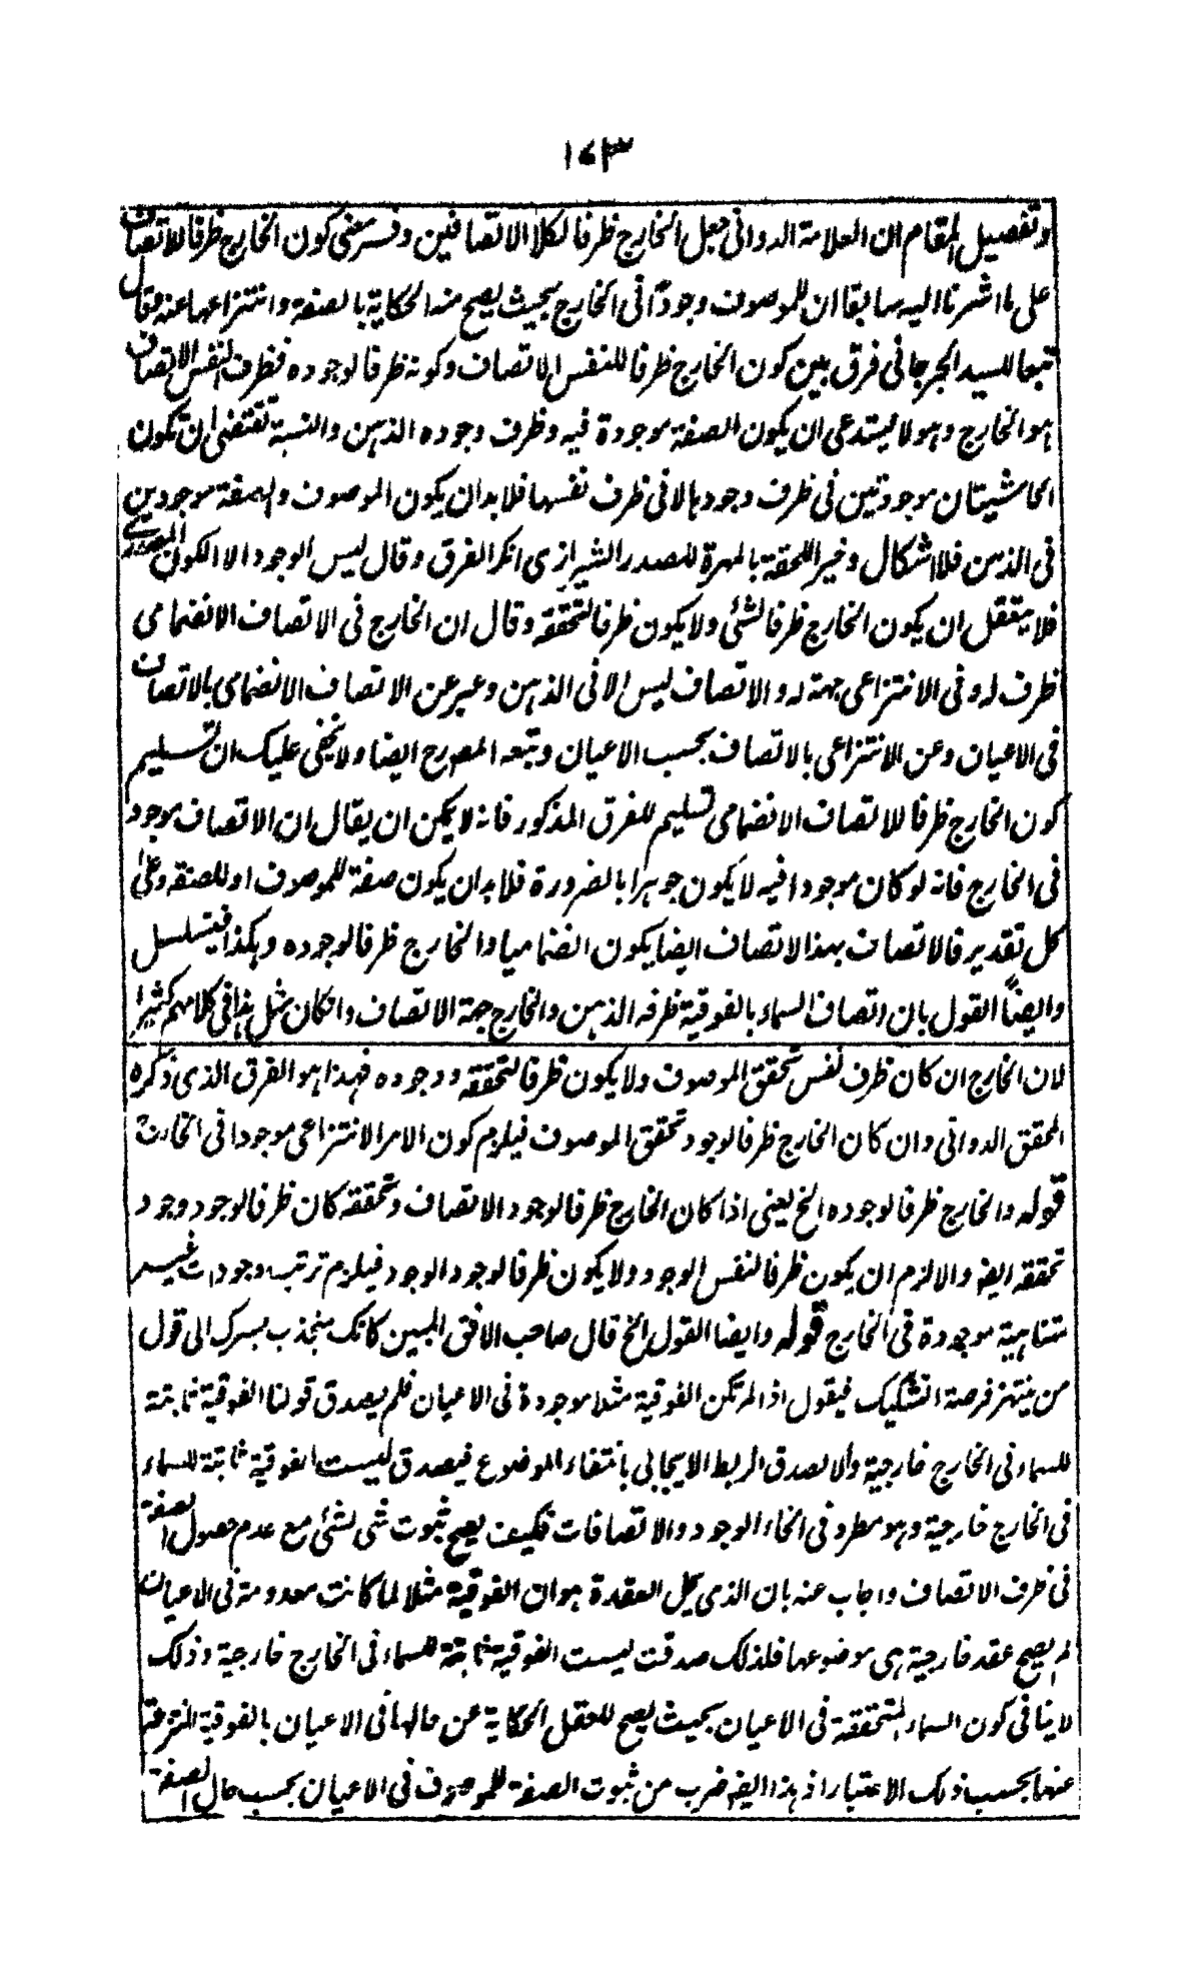 ١٤٣
وتفصيل المقام ان العلامة الدوانى جعل الخارج ظرفا لكلا الاتصافين وفسر معنى كون الخارج ظرفا للاتصاف
على ما اشرنا اليه سابقا ان للموصوف وجودًا فى الخارج بحيث يصح منه الحكاية بالصفة وانتزاعها عنه وقال
تبعا للسيد الجرجانى فرق بين كون الخارج ظرفا للنفس الاتصاف وكونه ظرفا لوجوده فظرف لنفس الاتصاف
هو الخارج وهو لا يستدعى ان يكون الصفة موجودة فيه وظرف وجوده الذهن والنسبة تقتضى ان تكون
الحاشيتان موجودتين فى ظرف وجودها لا فى ظرف نفسها فلا بد ان يكون الموصوف والصفة موجودين
فى الذهن فلا اشكال وخير اللحقة بالمهرة للصدر الشيرازى انكر الفرق وقال ليس الوجود الا الكون المصدرى
فلا يتعقل ان يكون الخارج ظرفا لشئ ولا يكون ظرفا لتحققه وقال ان الخارج فى الاتصاف الانضمامى
ظرف له وفى الانتزاعى جهة له والاتصاف ليس الا فى الذهن وعبر عن الاتصاف الانضمامى بالاتصاف
فى الاعيان وعن الانتزاعى بالاتصاف بحسب الاعيان وتبعه المصرح ايضا ولا يخفى عليك ان تسليم
كون الخارج ظرفا للاتصاف الانضمامى تسليم للفرق المذكور فانه لا يمكن ان يقال ان الاتصاف موجود
فى الخارج فانه لو كان موجودا فيه لا يكون جوهرا بالضرورة فلا بد ان يكون صفة للموصوف او للصفة وعلى
كل تقدير فالاتصاف بهذا الاتصاف ايضا يكون انضماميا والخارج ظرفا لوجوده وهكذا فيتسلسل
وايضًا القول بان اتصاف السماء بالفوقية ظرفه الذهن والخارج جهة الاتصاف وان كان مثل هذا فى كلامهم كثيرا
لان الخارج ان كان ظرف نفس تحقق الموصوف ولا يكون ظرفا لتحققه ووجوده فهذا هو الفرق الذى ذكره
المحقق الدوانى وان كان الخارج ظرفا لوجود تحقق الموصوف فيلزم كون الامر الانتزاعى موجودا فى الخارج
قوله والخارج ظرفا لوجوده الخ يعنى اذا كان الخارج ظرفا لوجود الاتصاف وتحققه كان ظرفا لوجود وجود
تحققه ايضه والا لزم ان يكون ظرفا لنفس الوجود ولا يكون ظرفا لوجود الوجود فيلزم ترتب وجودات غير
متناهية موجودة فى الخارج قوله وايضا القول الخ قال صاحب الافق المبين كانك منجذب بسرك الى قول
من ينتهز فرصة التشكيك فيقول اذا لم تكن الفوقية مثلا موجودة فى الاعيان فلم يصدق قولنا الفوقية ثابتة
للسماء فى الخارج خارجية والا لصدق الربط الايجابى بانتفاء الموضوع فيصدق ليست الفوقية ثابتة للسماء
فى الخارج خارجية وهو مطرد فى انحاء الوجود والاتصافات فكيف يصح ثبوت شئ لشئ مع عدم حصول الصفة
فى ظرف الاتصاف واجاب عنه بان الذى يحل العقدة هو ان الفوقية مثلا لما كانت معدومة فى الاعيان
لم يصح عقد خارجية هى موضوعها فلذلك صدقت ليست الفوقية ثابتة للسماء فى الخارج خارجية وذلك
لا ينافى كون السماء المتحققة فى الاعيان بحيث يصح للعقل الحكاية عن حالها فى الاعيان بالفوقية المنتزعة
عنها بحسب ذلك الاعتبار اذ هذا ايضه ضرب من ثبوت الصفة للموصوف فى الاعيان بحسب حال الصفة